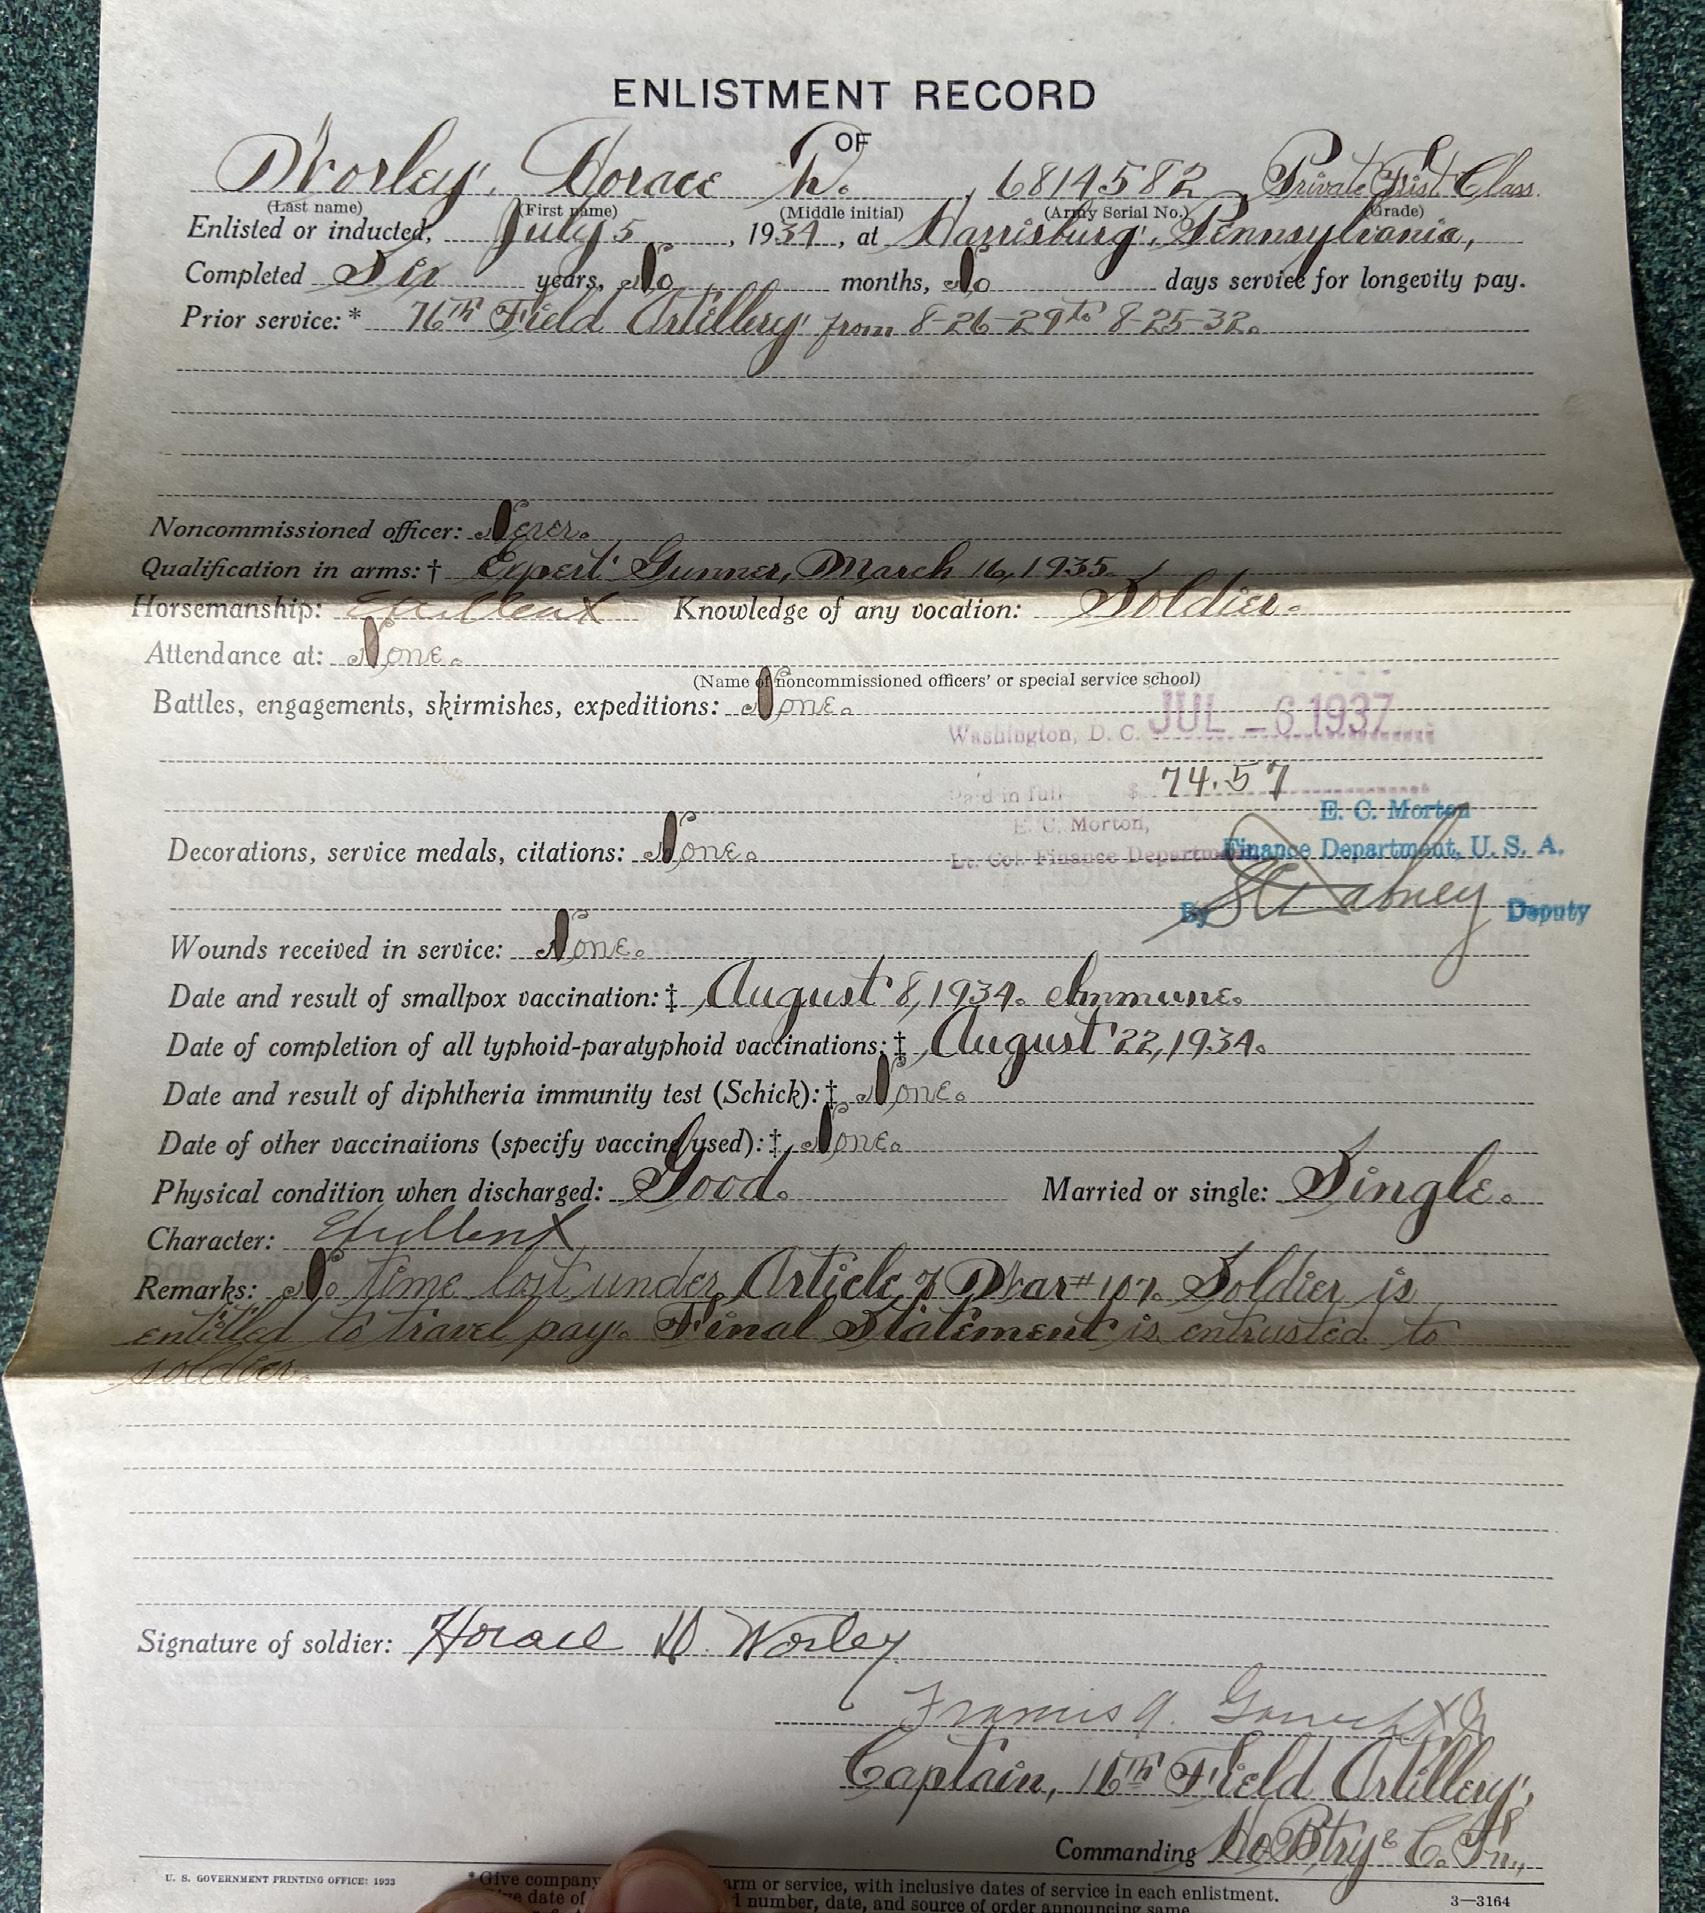 ENLISTMENT RECORD
OF
Worley, Horace W., 6814582, Private First Class.
(Last name) (First name) (Middle initial) (Army Serial No.) (Grade)
Enlisted or inducted, July 5, 1934, at Harrisburg, Pennsylvania,
Completed Six years, No months, No days service for longevity pay.
Prior service:* 76th Field Artillery from 8-26-29 to 8-25-32.
Noncommissioned officer: Never.
Qualification in arms:† Expert Gunner, March 16, 1935.
Horsemanship: Excellent Knowledge of any vocation: Soldier.
Attendance at: None.
(Name of noncommissioned officers' or special service school)
Battles, engagements, skirmishes, expeditions: None.
Washington, D. C. JUL - 6 1937
Paid in full $ 74.57
E. C. Morton,
E. C. Morton
Lt. Col. Finance Department
Finance Department, U. S. A.
Decorations, service medals, citations: None.
By Deputy
Wounds received in service: None.
Date and result of smallpox vaccination:‡ August 8, 1934. Immune.
Date of completion of all typhoid-paratyphoid vaccinations:‡ August 22, 1934.
Date and result of diphtheria immunity test (Schick):‡ None.
Date of other vaccinations (specify vaccine used):‡ None.
Physical condition when discharged: Good. Married or single: Single.
Character: Excellent
Remarks: No time lost under Article of War #107. Soldier is
entitled to travel pay. Final Statement is entrusted to
soldier.
Signature of soldier: Horace W. Worley
Francis A.
Captain, 16th Field Artillery,
Commanding Hq Btry & C. Tn.,
U. S. GOVERNMENT PRINTING OFFICE: 1933
* Give company arm or service, with inclusive dates of service in each enlistment.
date of number, date, and source of order announcing same.
3—3164